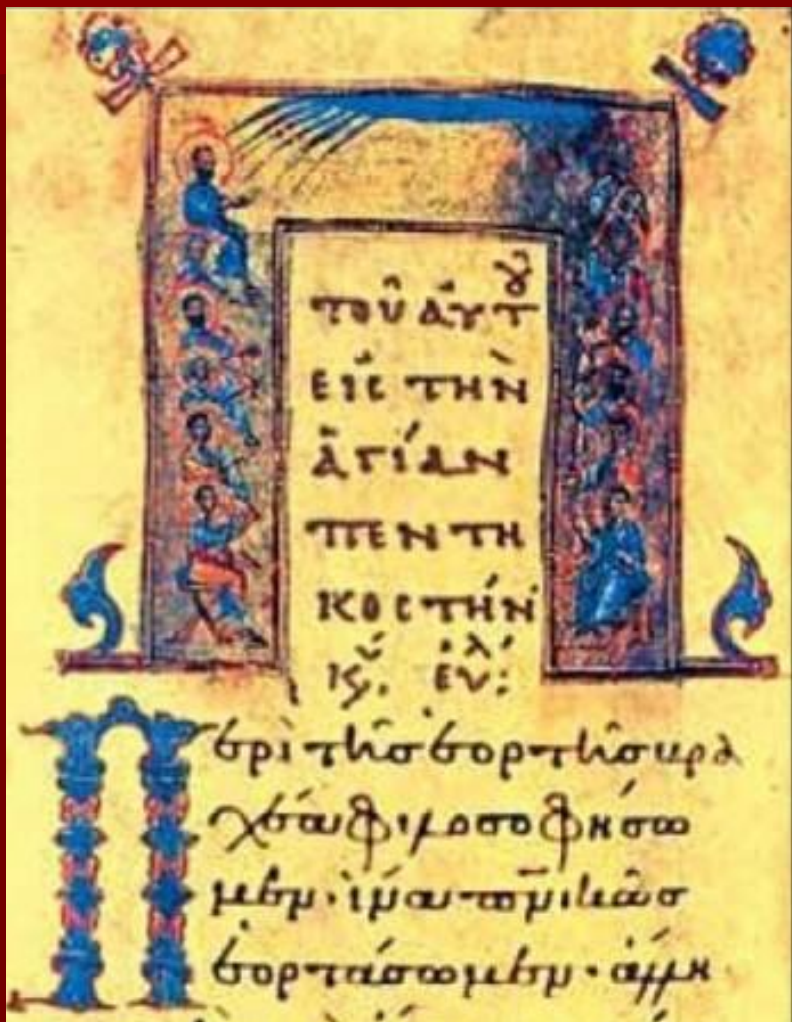 τοῦ αὐτοῦ
εἰς τὴν
ἁγίαν
πεντη
κοστήν
Περὶ τῆς ἑορτῆς βρα
χέα φιλοσοφήσω
μεν· ἵνα πν̅ικῶς
ἑορτάσωμεν· ἄλλη